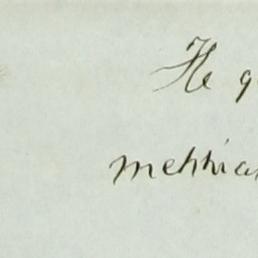 He g
mehhia